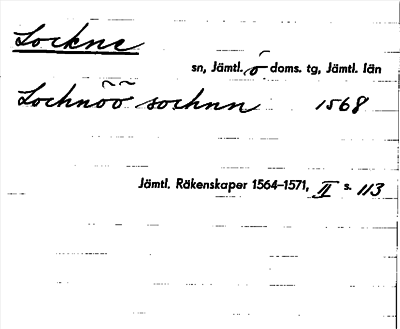 Lockne
sn, Jämtl. ö doms. tg, Jämtl. län
Lochnõõ sochnn 1568
Jämtl. Räkenskaper 1564–1571, II s. 113